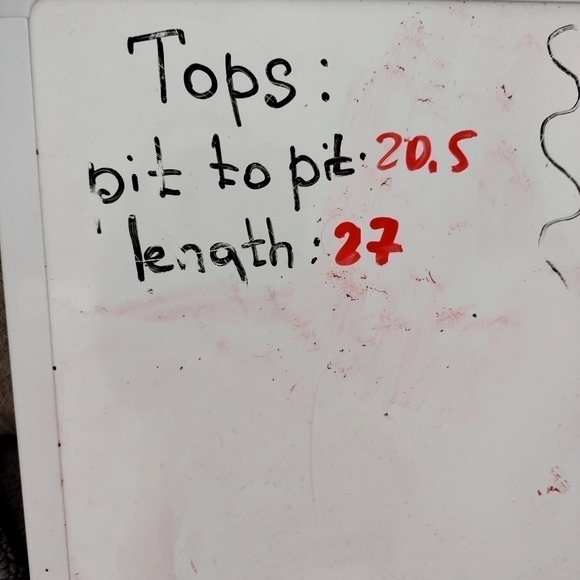 Tops:
pit to pit: 20.5
length: 27